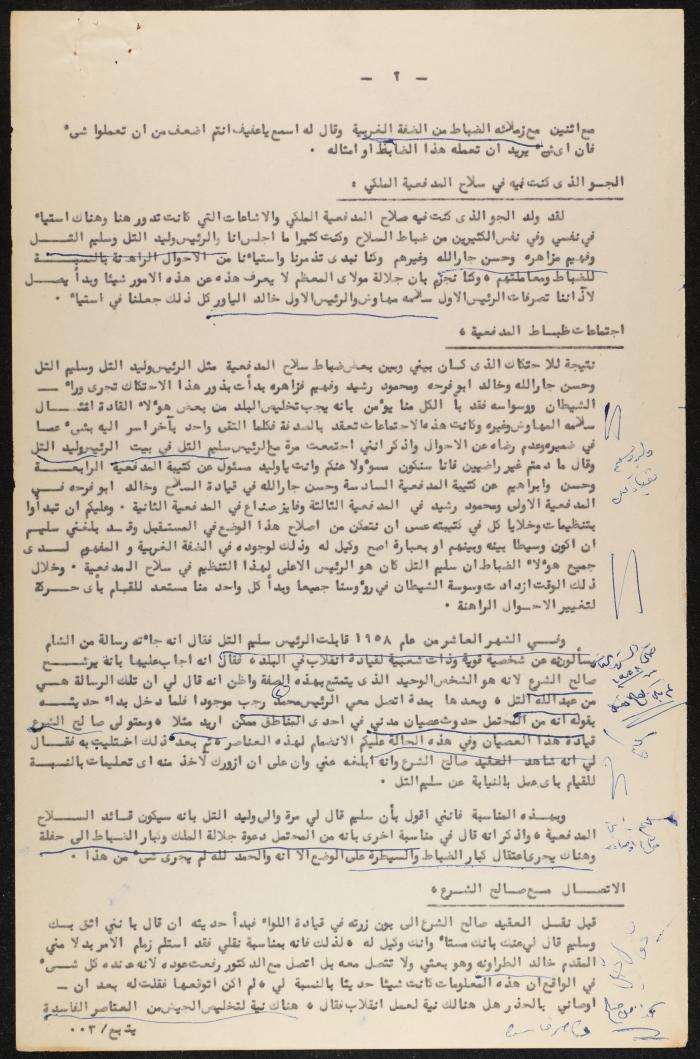 — ٢ —
مع اثنين مع زملائه الضباط من الضفة الغربية وقال له اسمع ياعفيف انتم اضعف من ان تعملوا شىء
فان اى شىء يريد ان تعمله هذا الضابط او امثاله .
الجو الذى كنت فيه في سلاح المدفعية الملكي :
لقد ولد الجو الذى كنت فيه صلاح المدفعية الملكي والاشاعات التي كانت تدور هنا وهناك استياء
في نفسي وفي نفس الكثيرين من ضباط السلاح وكنت كثيرا ما اجلس انا والرئيس وليد التل وسليم التل
وفهيم مزاهره وحسن جارالله وغيرهم وكنا نبدى تذمرنا واستياءنا من الاحوال الراهنة بالنسبة
للضباط ومعاملتهم ه وكنا نجزم بان جلالة مولاى المعظم لا يعرف هذه عن هذه الامور شيئا وبدأ يصل
لآذاننا تصرفات الرئيس الاول سلامه مهاوش والرئيس الاول خالد الياور كل ذلك جعلنا في استياء .
اجتماعات ظبساط المدفعية ه
نتيجة للاحتكاك الذى كان بيني وبين بعض ضباط سلاح المدفعية مثل الرئيس وليد التل وسليم التل
وحسن جارالله وخالد ابو فرحه ومحمود رشيد وفهيم فزاهره بدأت بذور هذا الاحتكاك تجرى وراء —
الشيطان ووسواسه فقد بدأ الكل منا يؤمن بانه يجب تخليص البلد من بعض هؤلاء القادة امثال
سلامه المهاوش وغيره وكانت هذه الاجتماعات تعقد بالصدفة فكلما التقى واحد بآخر اسر اليه بشيء عما
في ضميره وعدم رضاه عن الاحوال واذكر انني اجتمعت مرة مع الرئيس سليم التل في بيت الرئيس وليد التل
وقال ما دمتم غير راضيين فانا سنكون مسؤولا عنكم وانت ياوليد مسئول عن كتيبة المدفعية الرابعة
وحسن وابراهيم عن كتيبة المدفعية السادسة وحسن جارالله في قيادة السلاح وخالد ابو فرحه في
المدفعية الاولى ومحمود رشيد في المدفعية الثالثة وفايز صداع في المدفعية الثانية . وعليكم ان تبدأوا
بتنظيمات وخلايا كل في كتيبته عسى ان نتمكن من اصلاح هذا الوضع في المستقبل وقد بلغني سليم
ان اكون وسيطا بينه وبينهم او بعبارة اصح وكيل له وذلك لوجوده في الضفة الغربية و المفهوم لدى
جميع هؤلاء الضباط ان سليم التل كان هو الرئيس الاعلى لهذا التنظيم في سلاح المدفعية . وخلال
ذلك الوقت ازدادت وسوسة الشيطان في رؤوسنا جميعا وبدأ كل واحد منا مستعد للقيام بأى حركة
لتغيير الاحوال الراهنة .
وفي الشهر العاشر من عام ١٩٥٨ قابلت الرئيس سليم التل فقال انه جاءته رسالة من الشام
يسألونه عن شخصية قوية وذات شعبية لقيادة انقلاب في البلد ه فقال انه اجاب عليها بانه يرشح
صالح الشرع لانه هو الشخص الوحيد الذى يتمتع بهذه الصفة واظن انه قال لي ان تلك الرسالة هي
من عبدالله التل ه وبعدها بمدة اتصل معي الرئيس محمد رجب موجودا فلما دخل بدأ حديثه
بقوله انه من المحتمل حدوث عصيان مدني في احدى المناطق ممكن اربد مثلا ه وستولى صالح الشرع
قيادة هذا العصيان وفي هذه الحالة عليكم الانضمام لهذه العناصر ه ثم بعد ذلك اختليت به فقال
لي انه شاهد العقيد صالح الشرع وانه ابلغه عني وان على ان ازورك لآخذ منه اى تعليمات بالنسبة
للقيام باى عمل بالنيابة عن سليم التل .
وبهذه المناسبة فانني اقول بأن سليم قال لي مرة والى وليد التل بانه سيكون قائد السلاح
المدفعية ه واذكر انه قال في مناسبة اخرى بانه من المحتمل دعوة جلالة الملك وكبار الضباط الى حفلة
وهناك يجرى اعتقال كبار الضباط والسيطرة على الوضع الا انه والحمد لله لم يجرى شىء من هذا .
الاتصال مع صالح الشرع ه
قبل نقل العقيد صالح الشرع الى بون زرته في قيادة اللواء فبدأ حديثه ان قال بانني اثق بك
وسليم قال لي عنك بانك مستاء وانك وكيل له ه لذلك فانه بمناسبة نقلي فقد استلم زمام الامر بدلا مني
المقدم خالد الطراونه وهو بعثي ولا تتصل معه بل اتصل مع الدكتور رفعت عوده لانه عنده كل شىء
في الواقع ان هذه المعلومات كانت شيئا حديثا بالنسبة لي ه لم اكن اتوقعها فقلت له بعد ان —
اوصاني بالحذر هل هنالك نية لعمل انقلاب فقال ه هناك نية لتخليص الجيش من العناصر الفاسدة
يتبع/٠٠٣
عناصر فاسده